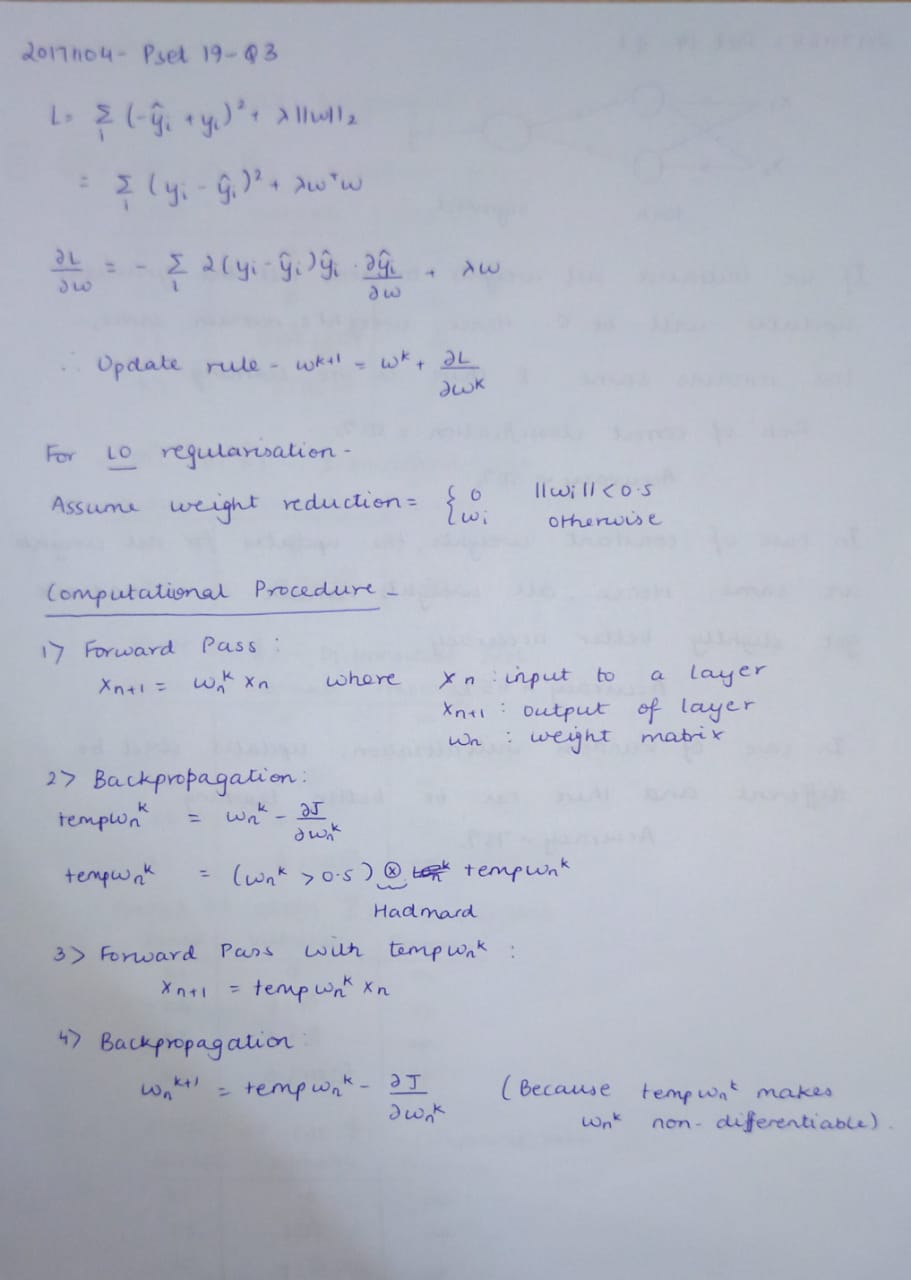 20171104 - Pset 19 - Q3
L = Σ_i (-ŷ_i + y_i)² + λ||w||₂
= Σ_i (y_i - ŷ_i)² + λw^T w
∂L/∂w = - Σ_i 2(y_i - ŷ_i)ŷ_i · ∂ŷ_i/∂w + λw
∴ Update rule - w^{k+1} = w^k + ∂L/∂w^k
For L0 regularisation -
Assume weight reduction = { 0 ||w_i|| < 0.5
{ w_i otherwise
Computational Procedure -
1> Forward Pass :
x_{n+1} = w_n^k x_n where x_n : input to a layer
x_{n+1} : output of layer
w_n : weight matrix
2> Backpropagation :
tempw_n^k = w_n^k - ∂J/∂w_n^k
tempw_n^k = (w_n^k > 0.5) ⊗ tempw_n^k
Hadmard
3> Forward Pass with tempw_n^k :
x_{n+1} = tempw_n^k x_n
4> Backpropagation :
w_n^{k+1} = tempw_n^k - ∂J/∂w_n^k (Because tempw_n^k makes
w_n^k non-differentiable).